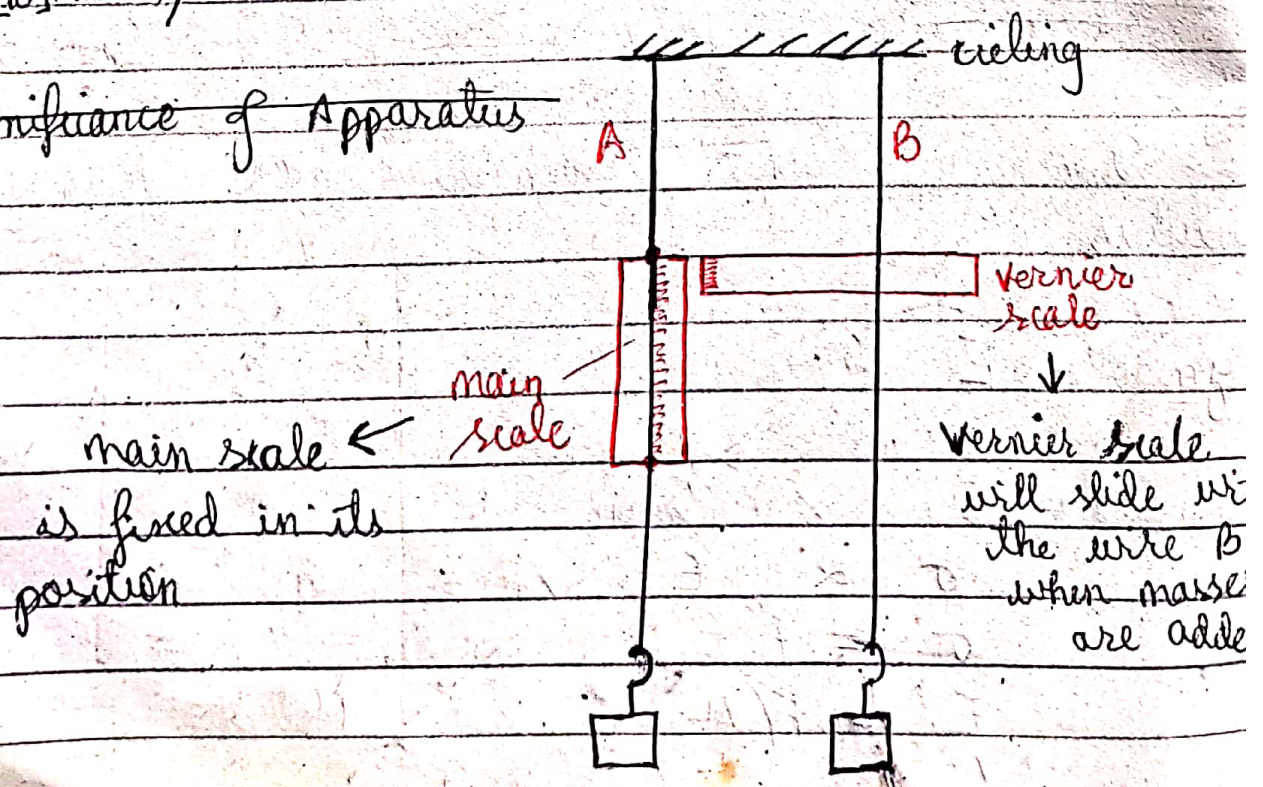 cieling
of Apparatus
A
B
vernier
scale
main
scale
main scale
is fixed in its
position
Vernier scale
will slide
the wire B
when
are